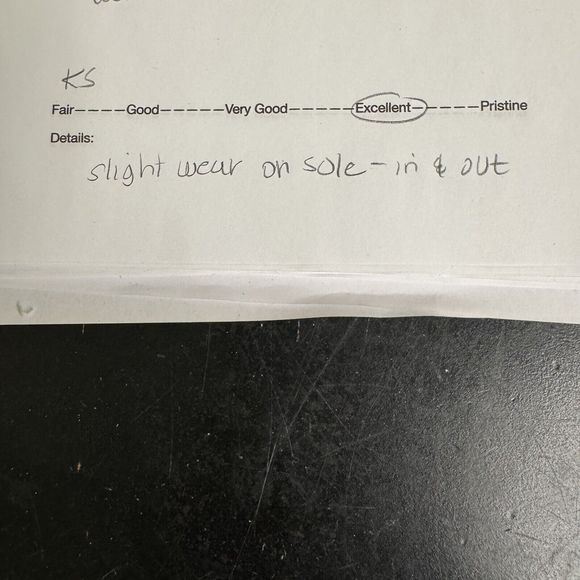 KS
Fair----Good-----Very Good-----Excellent-----Pristine
Details:
slight wear on sole - in & out